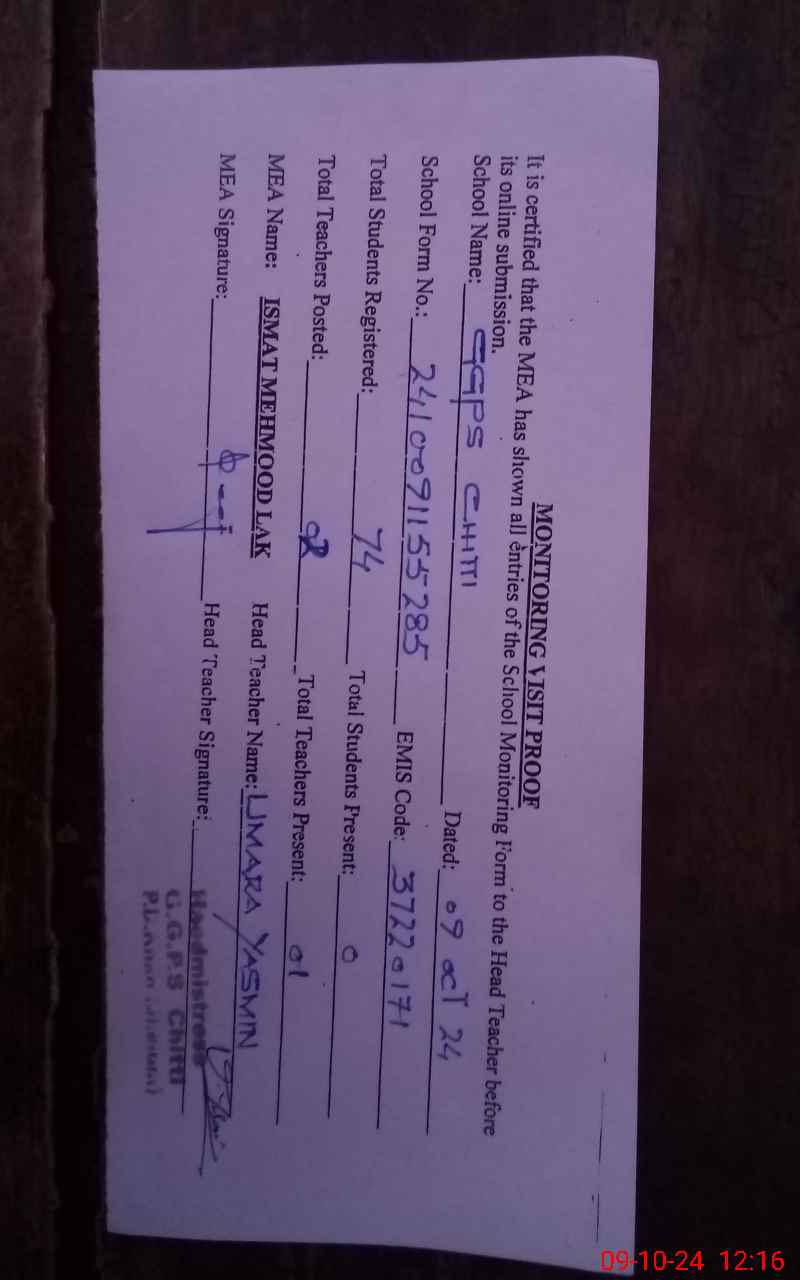 MONITORING VISIT PROOF
It is certified that the MEA has shown all entries of the School Monitoring Form to the Head Teacher before
its online submission.
School Name: GGPS CHITTI Dated: 09 OCT 24
School Form No.: 2410091155285 EMIS Code: 37220171
Total Students Registered: 74 Total Students Present: 0
Total Teachers Posted: 02 Total Teachers Present: 01
MEA Name: ISMAT MEHMOOD LAK Head Teacher Name: UMARA YASMIN
MEA Signature: Head Teacher Signature:
Headmistress
G.G.P.S Chitti
09-10-24 12:16